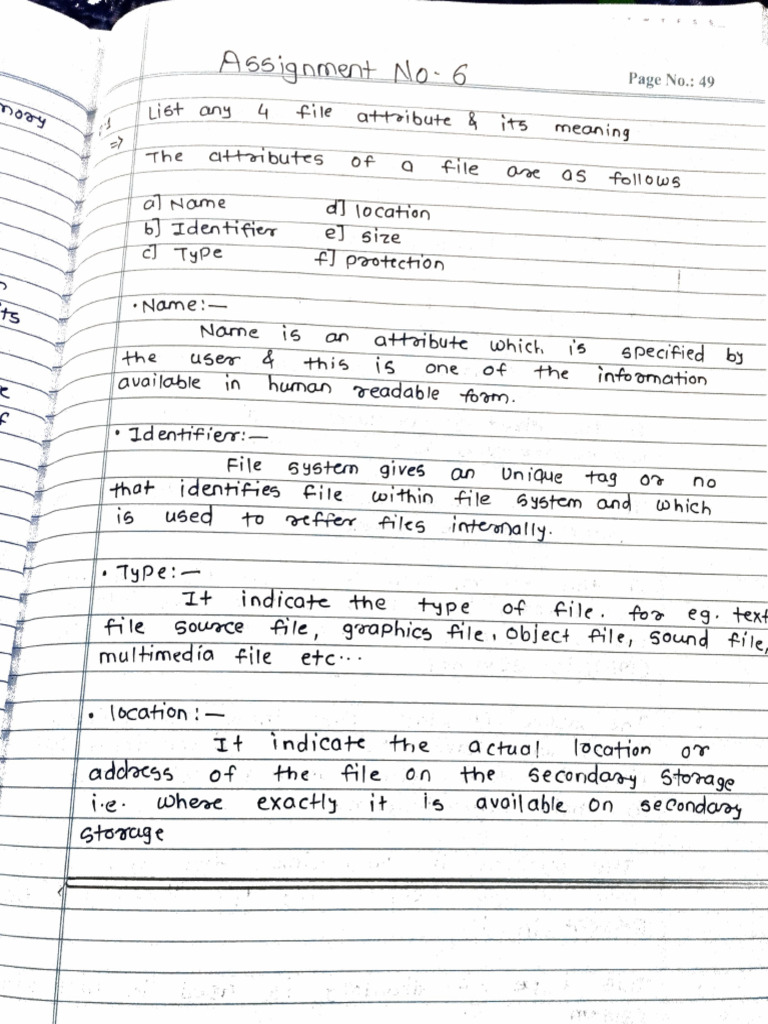 Assignment No. 6
Page No.: 49
:1 List any 4 file attribute & its meaning
=> The attributes of a file are as follows
a] Name d] location
b] Identifier e] size
c] Type f] protection
• Name:—
Name is an attribute which is specified by
the user & this is one of the information
available in human readable form.
• Identifier:—
File system gives an unique tag or no
that identifies file within file system and which
is used to reffer files internally.
• Type:—
It indicate the type of file. for eg. text
file source file, graphics file, object file, sound file,
multimedia file etc...
• location:—
It indicate the actual location or
address of the file on the secondary storage
i.e. where exactly it is available on secondary
storage